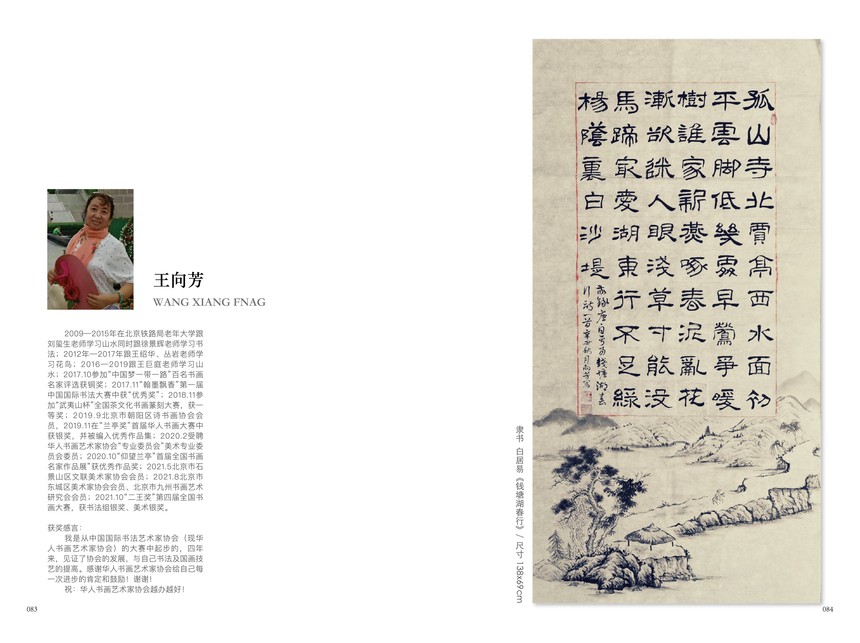 王向芳
WANG XIANG FNAG
2009—2015年在北京铁路局老年大学跟
刘玺生老师学习山水同时跟徐景辉老师学习书
法；2012年—2017年跟王绍华、丛岩老师学
习花鸟；2016—2019跟王巨庭老师学习山
水；2017.10参加“中国梦一带一路”百名书画
名家评选获铜奖；2017.11“翰墨飘香”第一届
中国国际书法大赛中获“优秀奖”；2018.11参
加“武夷山杯”全国茶文化书画篆刻大赛，获一
等奖；2019.9北京市朝阳区诗书画协会会
员，2019.11在“兰亭奖”首届华人书画大赛中
获银奖，并被编入优秀作品集；2020.2受聘
华人书画艺术家协会“专业委员会”美术专业委
员会委员；2020.10“仰望兰亭”首届全国书画
名家作品展”获优秀作品奖；2021.5北京市石
景山区文联美术家协会会员；2021.8北京市
东城区美术家协会会员、北京市九州书画艺术
研究会会员；2021.10“二王奖”第四届全国书
画大赛，获书法组银奖、美术银奖。
获奖感言：
我是从中国国际书法艺术家协会（现华
人书画艺术家协会）的大赛中起步的，四年
来，见证了协会的发展，与自己书法及国画技
艺的提高。感谢华人书画艺术家协会给自己每
一次进步的肯定和鼓励！谢谢！
祝：华人书画艺术家协会越办越好！
083
孤山寺北賈亭西水面初
平雲脚低幾處早鶯爭暖
樹誰家新燕啄春泥亂花
漸欲迷人眼淺草才能没
馬蹄最愛湖東行不足綠
楊蔭裏白沙堤
隶书 白居易《钱塘湖春行》/ 尺寸 138x69cm
084